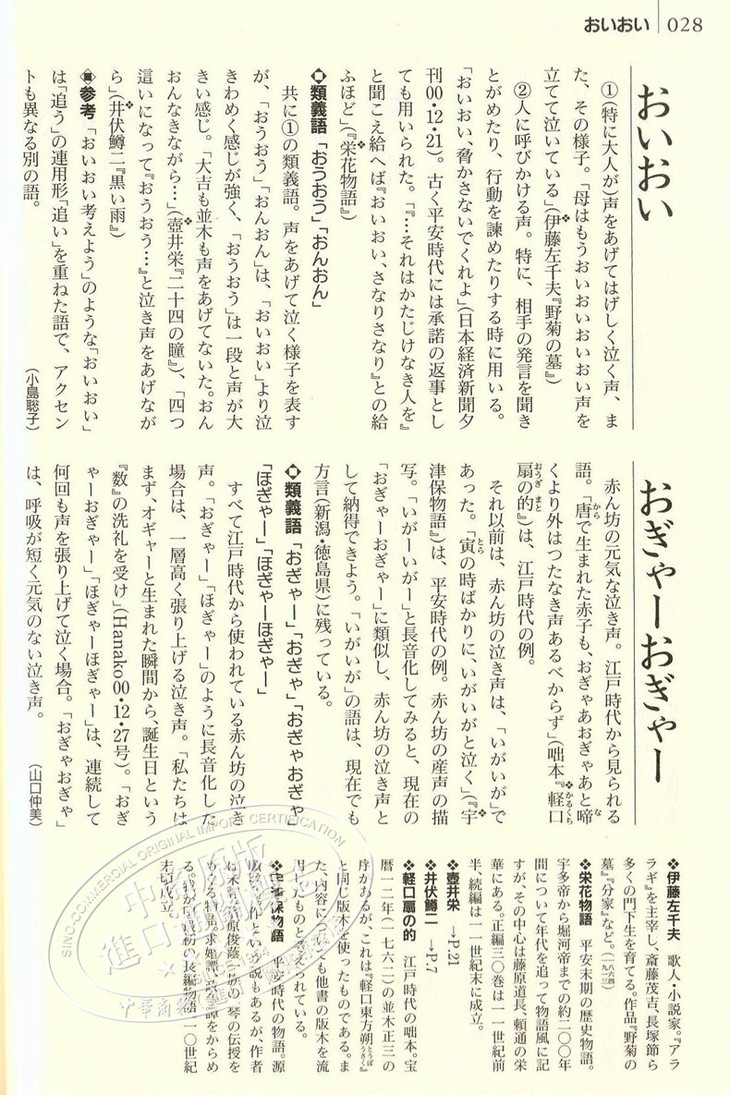 おいおい 028
おいおい
①(特に大人が)声をあげてはげしく泣く声、ま
た、その様子。「母はもうおいおいおいおい声を
立てて泣いている」(伊藤左千夫『野菊の墓』)
②人に呼びかける声。特に、相手の発言を聞き
とがめたり、行動を諫めたりする時に用いる。
「おいおい、脅かさないでくれよ」(日本経済新聞夕
刊00・12・21)。古く平安時代には承諾の返事とし
ても用いられた。「『…それはかたじけなき人を』
と聞こえ給へば『おいおい、さなりさなり』との給
ふほど」(『栄花物語』)
◆類義語「おうおう」「おんおん」
共に①の類義語。声をあげて泣く様子を表す
が、「おうおう」「おんおん」は、「おいおい」より泣
きわめく感じが強く、「おうおう」は一段と声が大
きい感じ。「大吉も並木も声をあげてないた。おん
おんなきながら…」(壺井栄『二十四の瞳』)、「四つ
這いになって『おうおう…』と泣き声をあげなが
ら」(井伏鱒二『黒い雨』)
◆参考「おいおい考えよう」のような「おいおい」
は「追う」の連用形「追い」を重ねた語で、アクセン
トも異なる別の語。
(小島聡子)
おぎゃーおぎゃー
赤ん坊の元気な泣き声。江戸時代から見られる
語。「唐で生まれた赤子も、おぎゃあおぎゃあと啼
くより外はつたなき声あるべからず」(咄本『軽口
扇の的』)は、江戸時代の例。
それ以前は、赤ん坊の泣き声は、「いがいが」で
あった。「寅の時ばかりに、いがいがと泣く」(『宇
津保物語』)は、平安時代の例。赤ん坊の産声の描
写。「いがーいがー」と長音化してみると、現在の
「おぎゃーおぎゃー」に類似し、赤ん坊の泣き声と
して納得できよう。「いがいが」の語は、現在でも
方言(新潟・徳島県)に残っている。
◆類義語「おぎゃー」「おぎゃ」「おぎゃおぎゃ」
「ほぎゃー」「ほぎゃーほぎゃー」
すべて江戸時代から使われている赤ん坊の泣き
声。「おぎゃー」「ほぎゃー」のように長音化した
場合は、一層高く張り上げる泣き声。「私たちは
まず、オギャーと生まれた瞬間から、誕生日という
『数』の洗礼を受け」(Hanako00・12・27号)。「おぎ
ゃーおぎゃー」「ほぎゃーほぎゃー」は、連続して
何回も声を張り上げて泣く場合。「おぎゃおぎゃ」
は、呼吸が短く元気のない泣き声。
(山口仲美)
❖伊藤左千夫 歌人・小説家。『アラ
ラギ』を主宰し、斎藤茂吉、長塚節ら
多くの門下生を育てる。作品『野菊の
墓』『分家』など。
❖栄花物語 平安末期の歴史物語。
宇多帝から堀河帝までの約二〇〇年
間について年代を追って物語風に記
すが、その中心は藤原道長、頼通の栄
華にある。正編三〇巻は一一世紀前
半、続編は一一世紀末に成立。
❖壺井栄 →P.21
❖井伏鱒二 →P.7
❖軽口扇の的 江戸時代の咄本。宝
暦一二年(一七六二)の並木正三の
序があるが、これは『軽口東方朔』
と同じ版木を使ったものである。ま
た、内容についても他書の版木を流
用したものと考えられている。
❖宇津保物語 平安時代の物語。源
順の作という説もあるが、作者
は未詳。清原俊蔭一族の琴の伝授を
めぐる物語。求婚譚、政争譚をからめ
る。我が国最初の長編物語。一〇世紀
末頃成立。
SINO-COMMERCIAL ORIGINAL IMPORT CERTIFICATION
中商原版
進口圖書